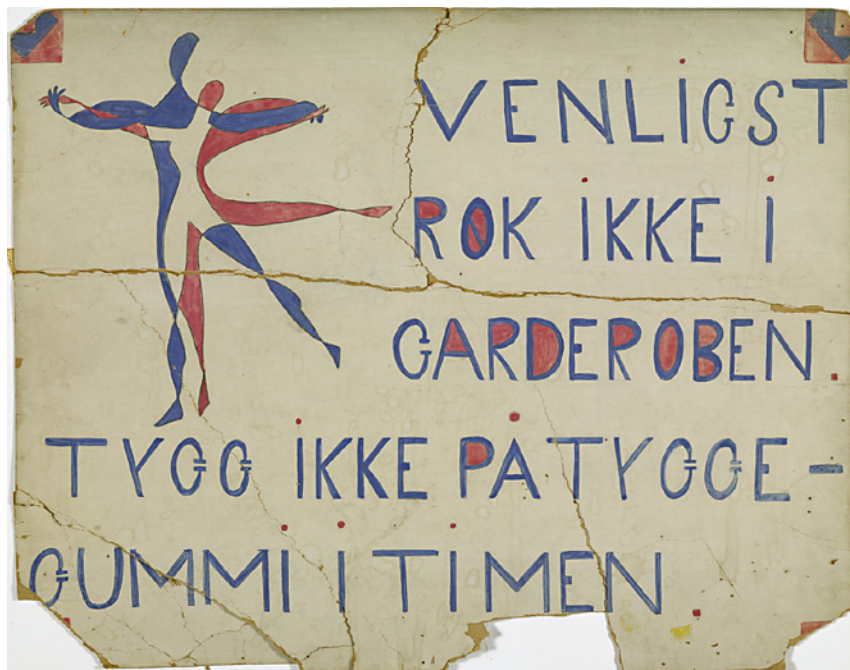 VENLIGST
RØK IKKE I
GARDEROBEN.
TYGG IKKE PÅ TYGGE-
GUMMI I TIMEN.